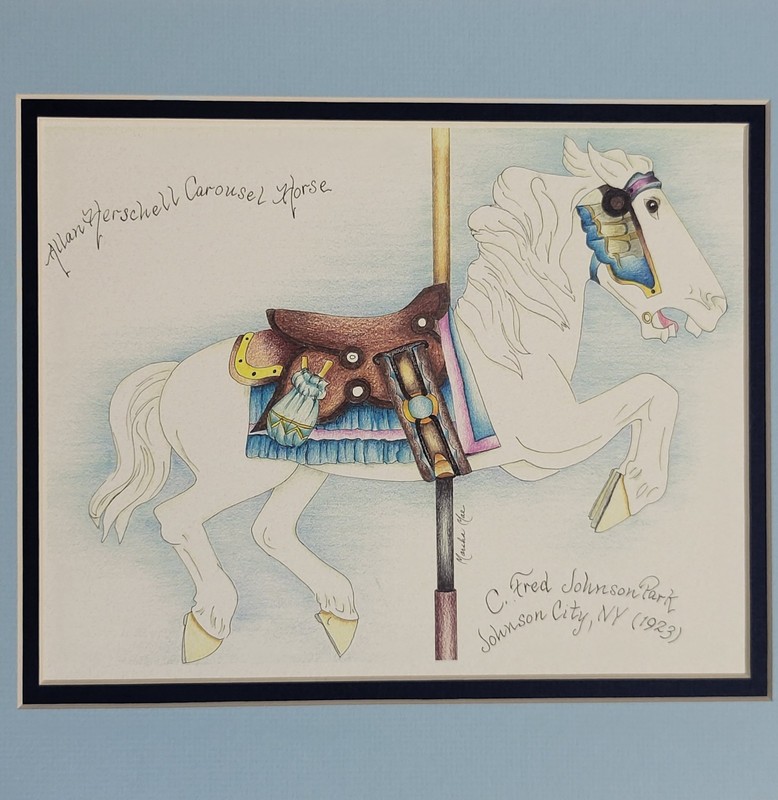 Allan Herschell Carousel Horse
Marsha Mae
C. Fred Johnson Park
Johnson City, NY (1923)